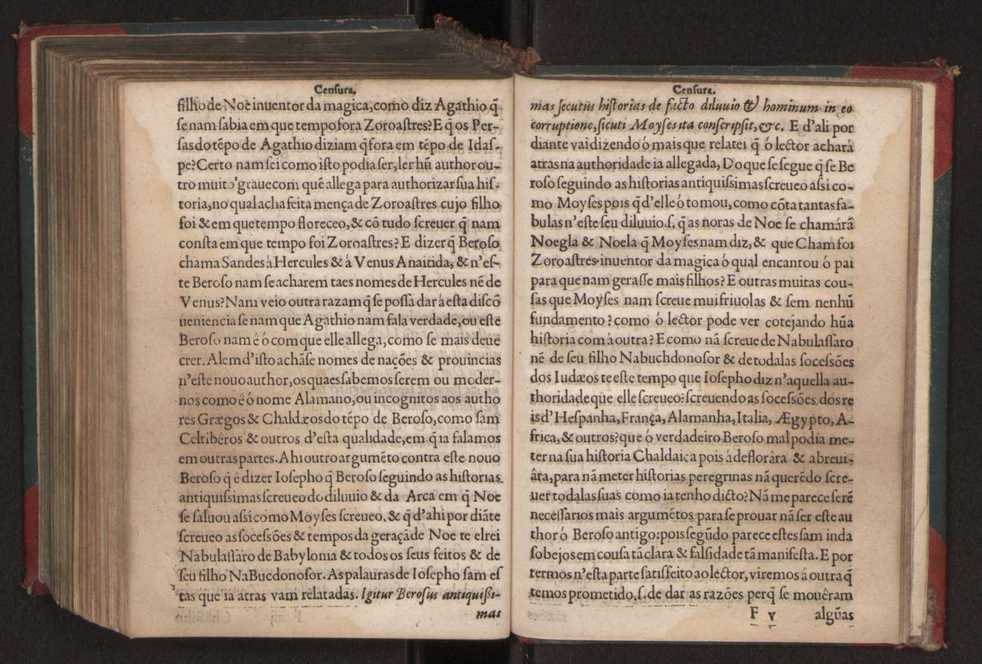 Censura.
filho de Noè inuentor da magica, como diz Agathio q̃
se nam sabia em que tempo fora Zoroastres? E q̃ os Per-
sas do tẽpo de Agathio diziam q̃ fora em tẽpo de Idas-
pe? Certo nam sei como isto podia ser, ler hũ author ou-
tro muito graue com quẽ allega para authorizar sua his-
toria, no qual acha feita mença de Zoroastres cujo filho
foi & em que tempo floreceo, & cõ tudo screuer q̃ nam
consta em que tempo foi Zoroastres? E dizer q̃ Beroso
chama Sandes à Hercules & à Venus Anaitida, & n'es-
te Beroso nam se acharem taes nomes de Hercules nẽ de
Venus? Nam veio outra razam q̃ se possa dar à esta discõ
ueniencia se nam que Agathio nam fala verdade, ou este
Beroso nam é ó com que elle allega, como se mais deue
crer. Alem d'isto achãse nomes de nações & prouincias
n'este nouo author, os quaes sabemos serem ou moder-
nos como é ó nome Alamano, ou incognitos aos autho
res Græcos & Chaldæos do tẽpo de Beroso, como sam
Celtiberos & outros d'esta qualidade, em q̃ ia falamos
em outras partes. A hi outro argumẽto contra este nouo
Beroso q̃ é dizer Iosepho q̃ Beroso seguindo as historias
antiquissimas screueo do diluuio & da Arca em q̃ Noè
se saluou assi como Moyses screueo, & q̃ d'ahi por diãte
screueo as socessões & tempos da geraçã de Noe te elrei
Nabulassàro de Babylonia & todos os seus feitos & de
seu filho NaBucdonosor. As palauras de Iosepho sam es
tas que ia atras vam relatadas. Igitur Berosus antiquissi-
mas
Censura.
mas secutus historias de facto diluuio & hominum in eo
corruptione, sicuti Moyses ita conscripsit, &c. E d'ali por
diante vai dizendo ó mais que relatei q̃ ó lector achará
atras na authoridade ia allegada, Do que se segue q̃ se Be
roso seguindo as historias antiquissimas screueo assi co-
mo Moyses pois q̃ d'elle ó tomou, como cõta tantas fa-
bulas n'este seu diluuio. s. q̃ as noras de Noe se chamárã
Noegla & Noela q̃ Moyses nam diz, & que Cham foi
Zoroastres inuentor da magica ó qual encantou ó pai
para que nam gerasse mais filhos? E outras muitas cou-
sas que Moyses nam screue mui friuolas & sem nenhũ
fundamento? como ó lector pode ver cotejando hũa
historia com à outra? E como nã screue de Nabulassàro
nẽ de seu filho Nabuchdonosor & de todalas socessões
dos Iudæos te este tempo que Iosepho diz n'aquella au-
thoridade que elle screueo: screuendo as socessões dos re
is d'Hespanha, França, Alamanha, Italia, Ægypto, A-
frica, & outros? que ó verdadeiro Beroso mal podia me-
ter na sua historia Chaldaica pois à deflorâra & abreui-
âra, para nã meter historias peregrinas nã querẽdo scre-
uer todalas suas como ia tenho dicto? Nã me parece serẽ
necessarios mais argumẽtos para se prouar nã ser este au
thor ó Beroso antigo: pois segũdo parece estes sam inda
sobejos em cousa tã clara & falsidade tã manifesta. E por
termos n'esta parte satisfeito ao lector, viremos á outra q̃
temos prometido, s. de dar as razões perq̃ se mouêram
F v algũas